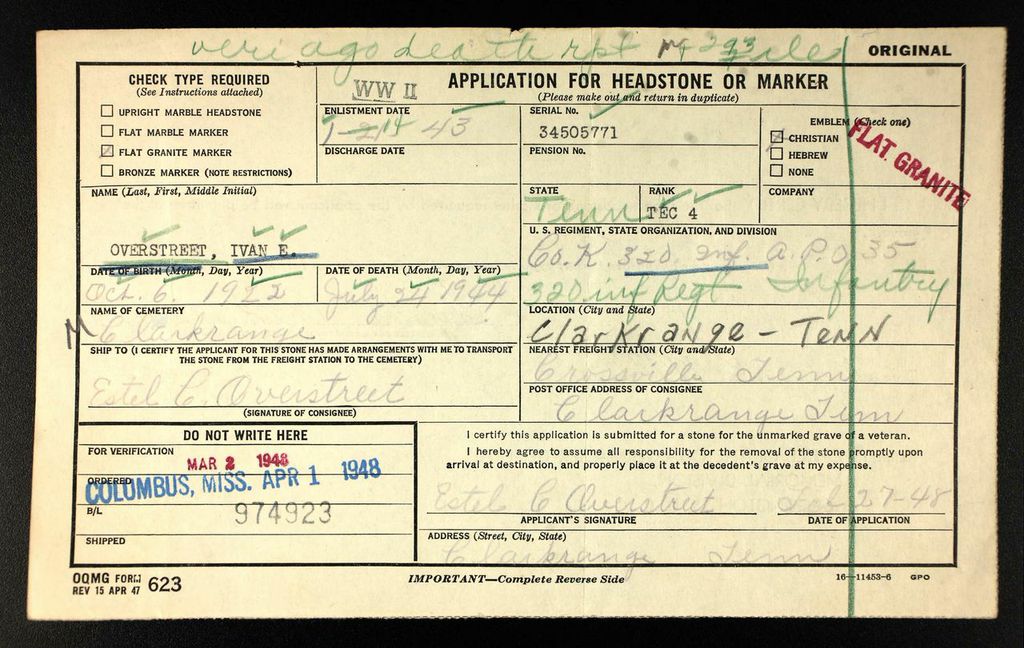 veri ago death rpt 293 file
ORIGINAL
CHECK TYPE REQUIRED
(See Instructions attached)
UPRIGHT MARBLE HEADSTONE
FLAT MARBLE MARKER
FLAT GRANITE MARKER
BRONZE MARKER (NOTE RESTRICTIONS)
WW II
APPLICATION FOR HEADSTONE OR MARKER
(Please make out and return in duplicate)
ENLISTMENT DATE
43
DISCHARGE DATE
SERIAL No.
34505771
PENSION No.
EMBLEM (Check one)
CHRISTIAN
HEBREW
NONE
FLAT GRANITE
NAME (Last, First, Middle Initial)
OVERSTREET, IVAN E.
STATE
Tenn
RANK
TEC 4
COMPANY
U. S. REGIMENT, STATE ORGANIZATION, AND DIVISION
Co. K 320 Inf. A.P.O 35
320 inf Regt Infantry
DATE OF BIRTH (Month, Day, Year)
Oct. 6, 1922
DATE OF DEATH (Month, Day, Year)
July 24 1944
NAME OF CEMETERY
M Clarkrange
LOCATION (City and State)
Clarkrange - TENN
SHIP TO (I CERTIFY THE APPLICANT FOR THIS STONE HAS MADE ARRANGEMENTS WITH ME TO TRANSPORT
THE STONE FROM THE FREIGHT STATION TO THE CEMETERY)
Estel C. Overstreet
(SIGNATURE OF CONSIGNEE)
NEAREST FREIGHT STATION (City and State)
Crossville Tenn
POST OFFICE ADDRESS OF CONSIGNEE
Clarkrange Tenn
DO NOT WRITE HERE
FOR VERIFICATION
MAR 2 1948
ORDERED
COLUMBUS, MISS. APR 1 1948
B/L
974923
SHIPPED
I certify this application is submitted for a stone for the unmarked grave of a veteran.
I hereby agree to assume all responsibility for the removal of the stone promptly upon
arrival at destination, and properly place it at the decedent's grave at my expense.
Estel C Overstreet 27-48
APPLICANT'S SIGNATURE
DATE OF APPLICATION
ADDRESS (Street, City, State)
Clarkrange Tenn
OQMG FORM 623
REV 15 APR 47
IMPORTANT—Complete Reverse Side
16—11453-6 GPO